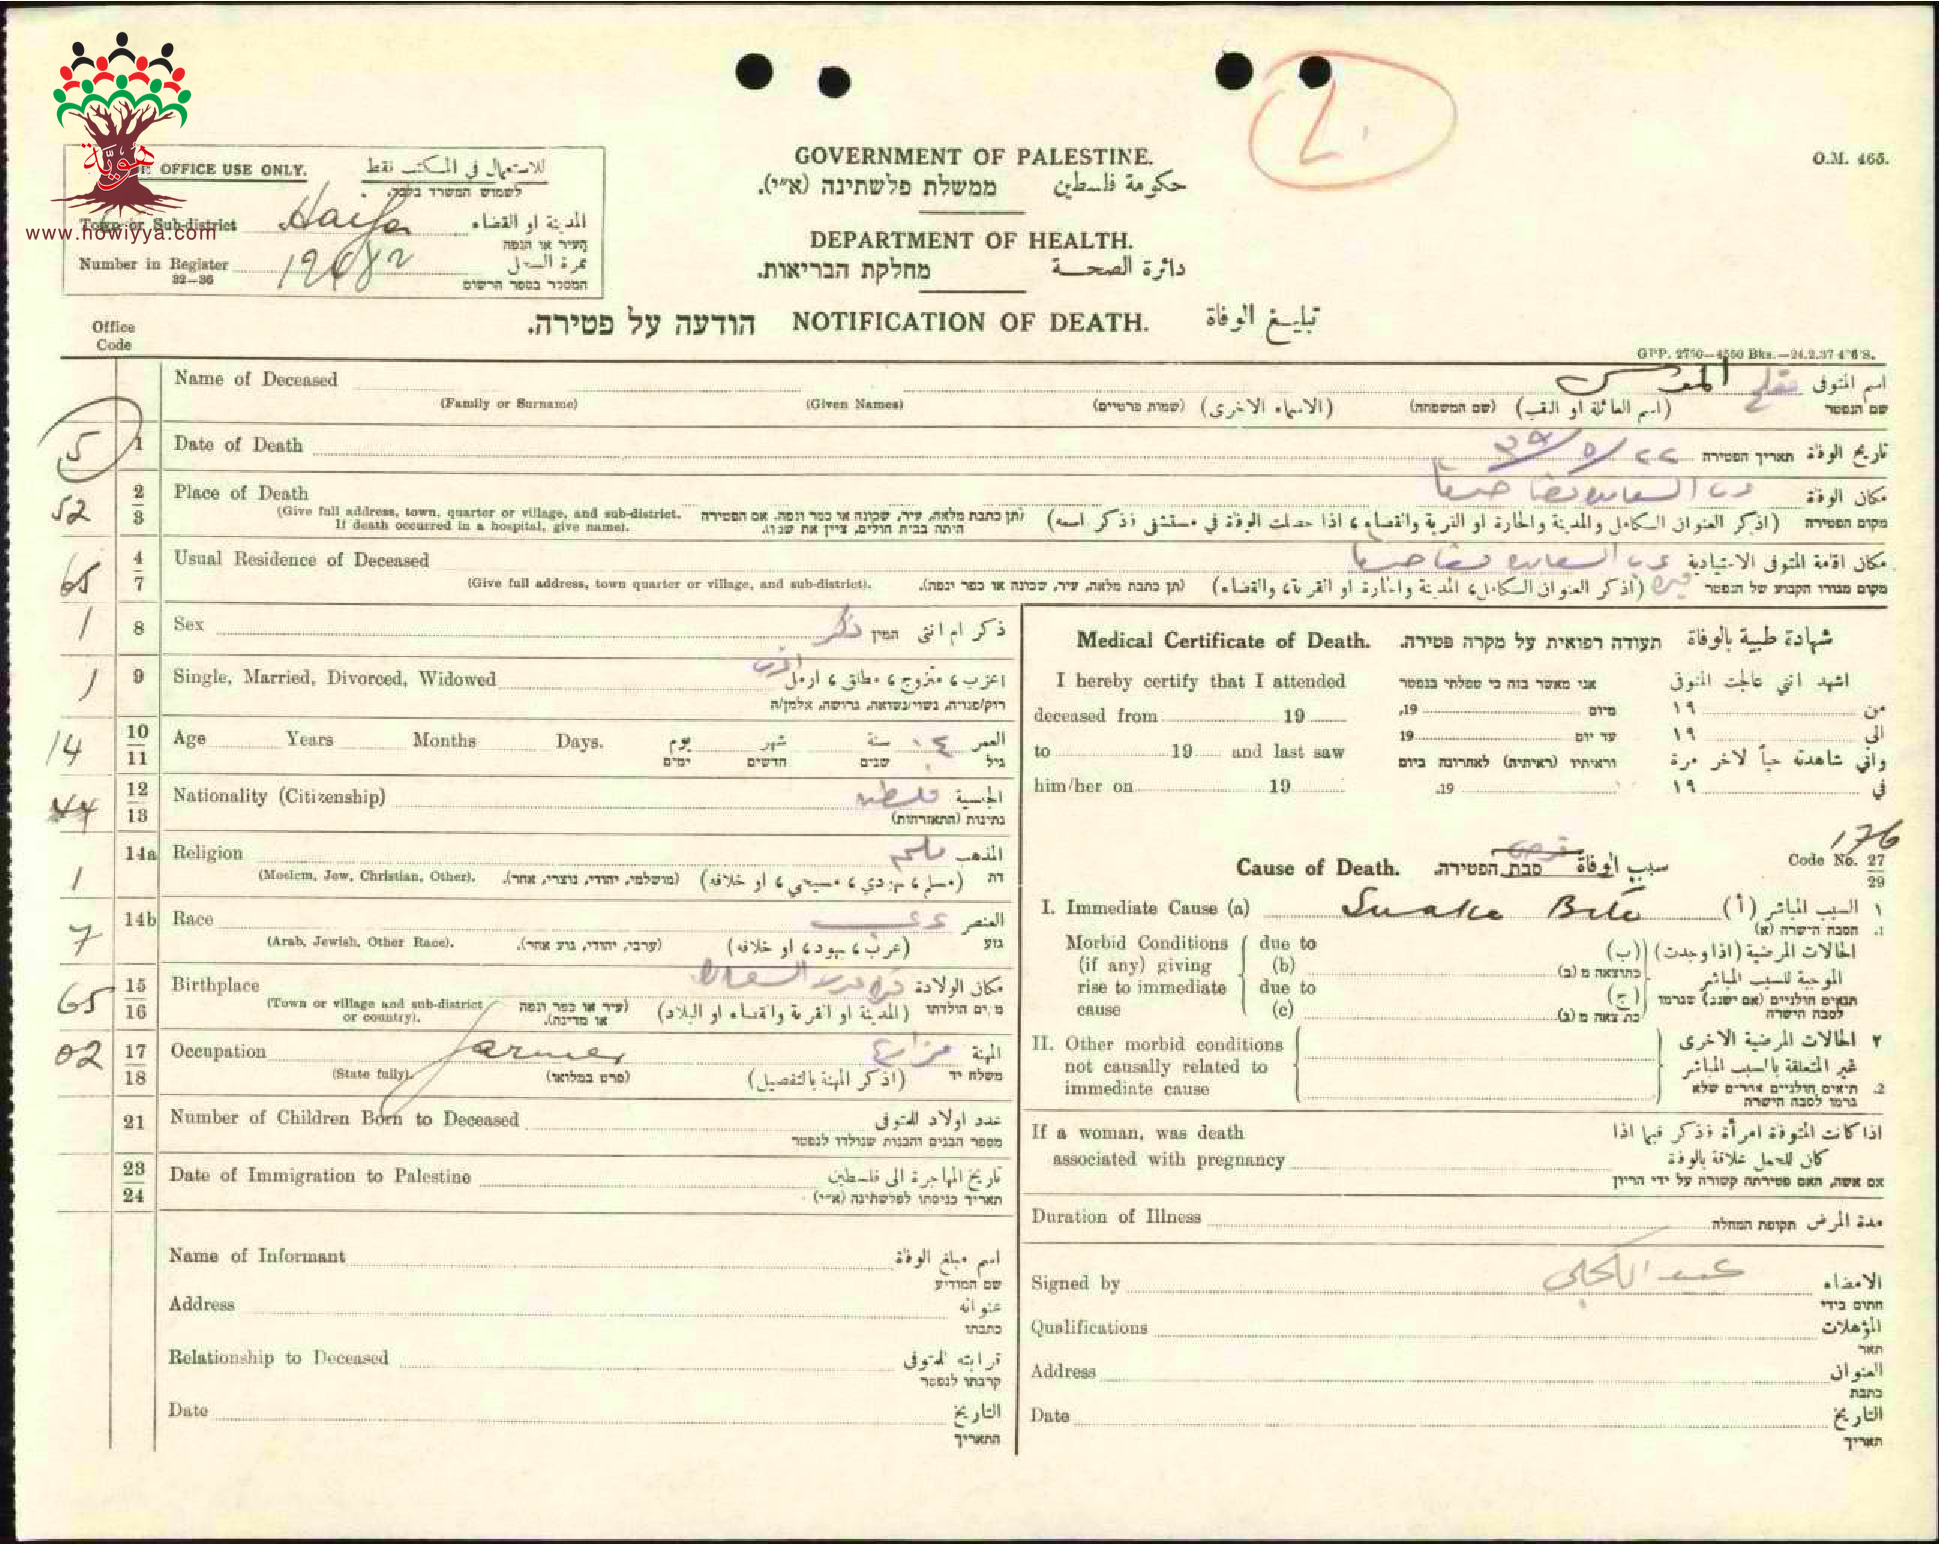 هوية
www.howiyya.com
OFFICE USE ONLY. للاستعمال في المكتب فقط
לשמוש המשרד בלבד.
Town or Sub-district Haifa المدينة او القضاء
העיר או הנפה
Number in Register نمرة السجل
32—36 המספר בספר הרשום
GOVERNMENT OF PALESTINE.
ממשלת פלשתינה (א״י). حكومة فلسطين
DEPARTMENT OF HEALTH.
מחלקת הבריאות. دائرة الصحة
O.M. 465.
הודעה על פטירה. NOTIFICATION OF DEATH. تبليغ الوفاة
Office
Code
Name of Deceased اسم المتوفى
(Family or Surname) (Given Names) (שמות פרטיים) (الاسماء الاخرى) (שם המשפחה) (اسم العائلة او اللقب) שם הנפטר
5 1 Date of Death ٢٢/٥/٣٩ תאריך הפטירה تاريخ الوفاة
52 2 3 Place of Death مكان الوفاة
(Give full address, town, quarter or village, and sub-district. (اذكر العنوان الكامل والمدينة والحارة او القرية والقضاء، اذا حصلت الوفاة في مستشفى فذكر اسمه) מקום הפטירה
If death occurred in a hospital, give name). היתה בבית חולים, ציין את שמו).
65 4 7 Usual Residence of Deceased مكان اقامة المتوفى الاعتيادية
(Give full address, town quarter or village, and sub-district). (תן כתבת מלאה, עיר, שכונה או כפר ונפה). (اذكر العنوان الكامل، المدينة والحارة او القرية، والقضاء) מקום מגורו הקבוע של הנפטר
1 8 Sex ذكر המין ذكر ام انثى
1 9 Single, Married, Divorced, Widowed اعزب اعزب، متزوج، مطلق، ارمل
רווק/פנויה, נשוי/נשואה, גרושה, אלמן/ה
14 10 11 Age Years Months Days. يوم شهر سنة العمر
ימים חדשים שנים גיל
44 12 13 Nationality (Citizenship) الجنسية
נתינות (התאזרחות)
1 14a Religion مسلم المذهب
(Moslem, Jew, Christian, Other). (מושלמי, יהודי, נוצרי, אחר). (مسلم، يهودي، مسيحي، او خلافه) דת
7 14b Race عربي العنصر
(Arab, Jewish, Other Race). (ערבי, יהודי, גזע אחר). (عرب، يهود، او خلافه) גזע
65 15 16 Birthplace مكان الولادة
(Town or village and sub-district or country). (עיר או כפר ונפה או מדינה). (المدينة او القرية والقضاء او البلاد)
02 17 18 Occupation farmer مزارع المهنة
(State fully). (פרט במלואו) (اذكر المهنة بالتفصيل) משלח יד
21 Number of Children Born to Deceased عدد اولاد المتوفى
מספר הבנים והבנות שנולדו לנפטר
23 24 Date of Immigration to Palestine تاريخ المهاجرة الى فلسطين
תאריך כניסתו לפלשתינה (א״י)
Name of Informant اسم مبلغ الوفاة
שם המודיע
Address عنوانه
כתבתו
Relationship to Deceased قرابته للمتوفى
קרבתו לנפטר
Date التاريخ
התאריך
Medical Certificate of Death. תעודה רפואית על מקרה פטירה. شهادة طبية بالوفاة
I hereby certify that I attended אני מאשר בזה כי טפלתי בנפטר اشهد انني عالجت المتوفى
deceased from 19 19, מיום ١٩ من
to 19 and last saw 19 עד יום ١٩ الى
וראיתיו (ראיתיה) לאחרונה ביום واني شاهدته حياً لآخر مرة
him/her on 19 19. ١٩ في
176
Cause of Death. סבת הפטירה. سبب الوفاة Code No. 27 29
I. Immediate Cause (a) Snake Bite (أ) السبب المباشر ١
הסבה הישרה (א) .1
Morbid Conditions due to الحالات المرضية (اذا وجدت) (ب)
(if any) giving (b) כתוצאה מ (ב) الموجبة للسبب المباشر
rise to immediate due to (ج) תנאים חולניים (אם ישנם) שגרמו
cause (c) כתוצאה מ (ג) לסבה הישרה
II. Other morbid conditions الحالات المرضية الاخرى ٢
not causally related to غير المتعلقة بالسبب المباشر
immedinte cause תנאים חולניים אחרים שלא .2
גרמו לסבה הישרה
If a woman, was death اذا كانت المتوفة امرأة فذكر فيما اذا
associated with pregnancy كان للحمل علاقة بالوفة
אם אשה, האם פטירתה קשורה על ידי הריון
Duration of Illness תקופת המחלה مدة المرض
Signed by الامضاء
חתום בידי
Qualifications المؤهلات
תאר
Address العنوان
כתבת
Date التاريخ
תאריך